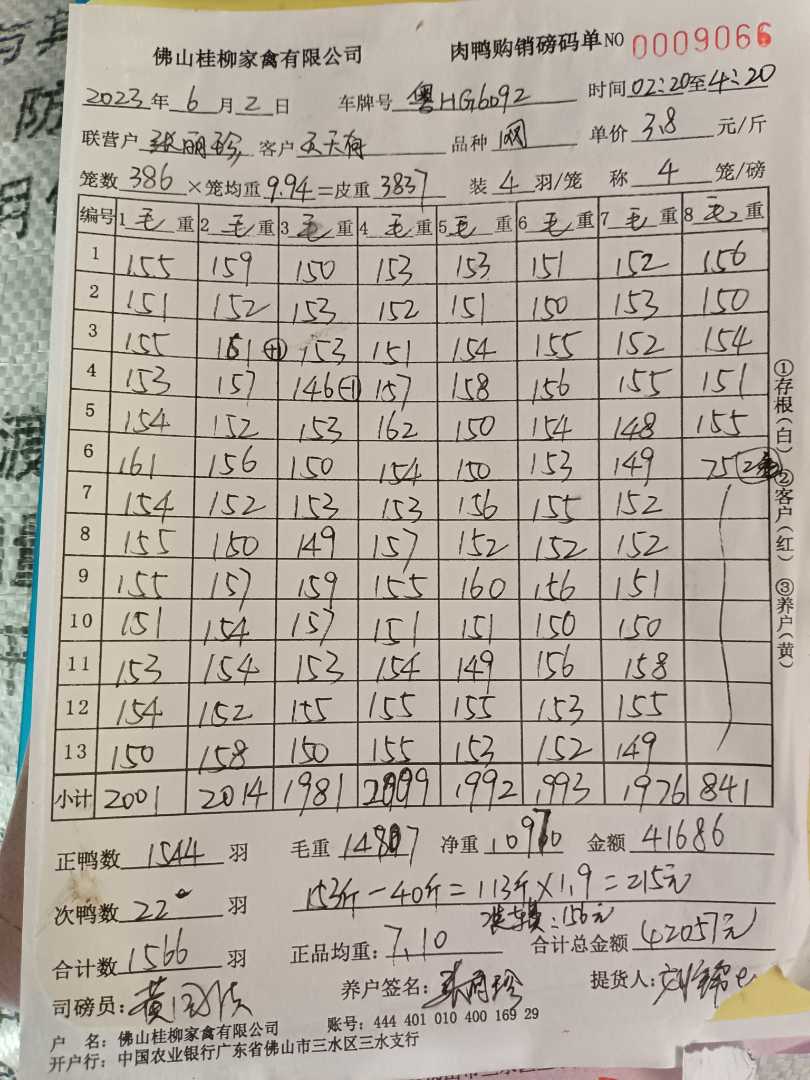 佛山桂柳家禽有限公司 肉鸭购销磅码单 NO 0009066
2023年6月2日 车牌号 粤HG6092 时间 02:20至4:20
联营户 张丽珍 客户 品种 单价 3.8 元/斤
笼数 386 ×笼均重 9.94 =皮重 3837 装 4 羽/笼 称 4 笼/磅
编号 1 毛 重 2 毛 重 3 毛 重 4 毛 重 5 毛 重 6 毛 重 7 毛 重 8 毛 重
1 155 159 150 153 153 151 152 156
2 151 152 153 152 151 150 153 150
3 155 161 (+1) 153 151 154 155 152 154
4 153 157 146 (-1) 157 158 156 155 151
5 154 152 153 162 150 154 148 155
6 161 156 150 154 150 153 149 75
7 154 152 153 153 156 155 152
8 155 150 149 157 152 152 152
9 155 157 159 155 160 156 151
10 151 154 157 151 151 150 150
11 153 154 153 154 149 156 158
12 154 152 155 155 155 153 155
13 150 158 150 155 153 152 149
小计 2001 2014 1981 1992 1993 1976 841
正鸭数 1544 羽 毛重 14807 净重 10970 金额 41686
次鸭数 22 羽 153斤-40斤=113斤×1.9=215元
156元
合计数 1566 羽 正品均重: 7.10 合计总金额 42057元
司磅员: 养户签名: 提货人:
户 名: 佛山桂柳家禽有限公司 账号: 444 401 010 400 169 29
开户行: 中国农业银行广东省佛山市三水区三水支行
①存根(白) ②客户(红) ③养户(黄)